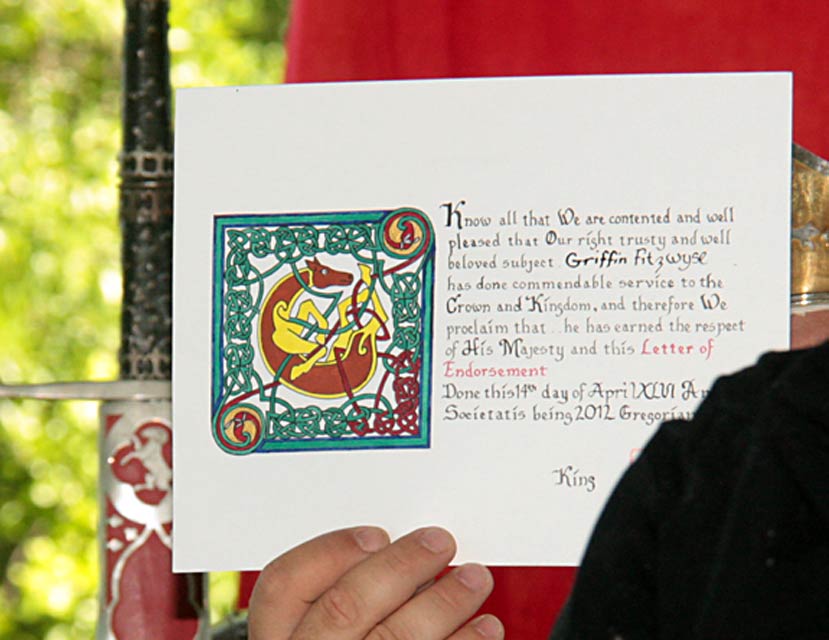 Know all that We are contented and well
pleased that Our right trusty and well
beloved subject Griffin Fitzwyse
has done commendable service to the
Crown and Kingdom, and therefore We
proclaim that he has earned the respect
of His Majesty and this Letter of
Endorsement
Done this 14th day of April XLVI
Societatis being 2012 Gregorian
King